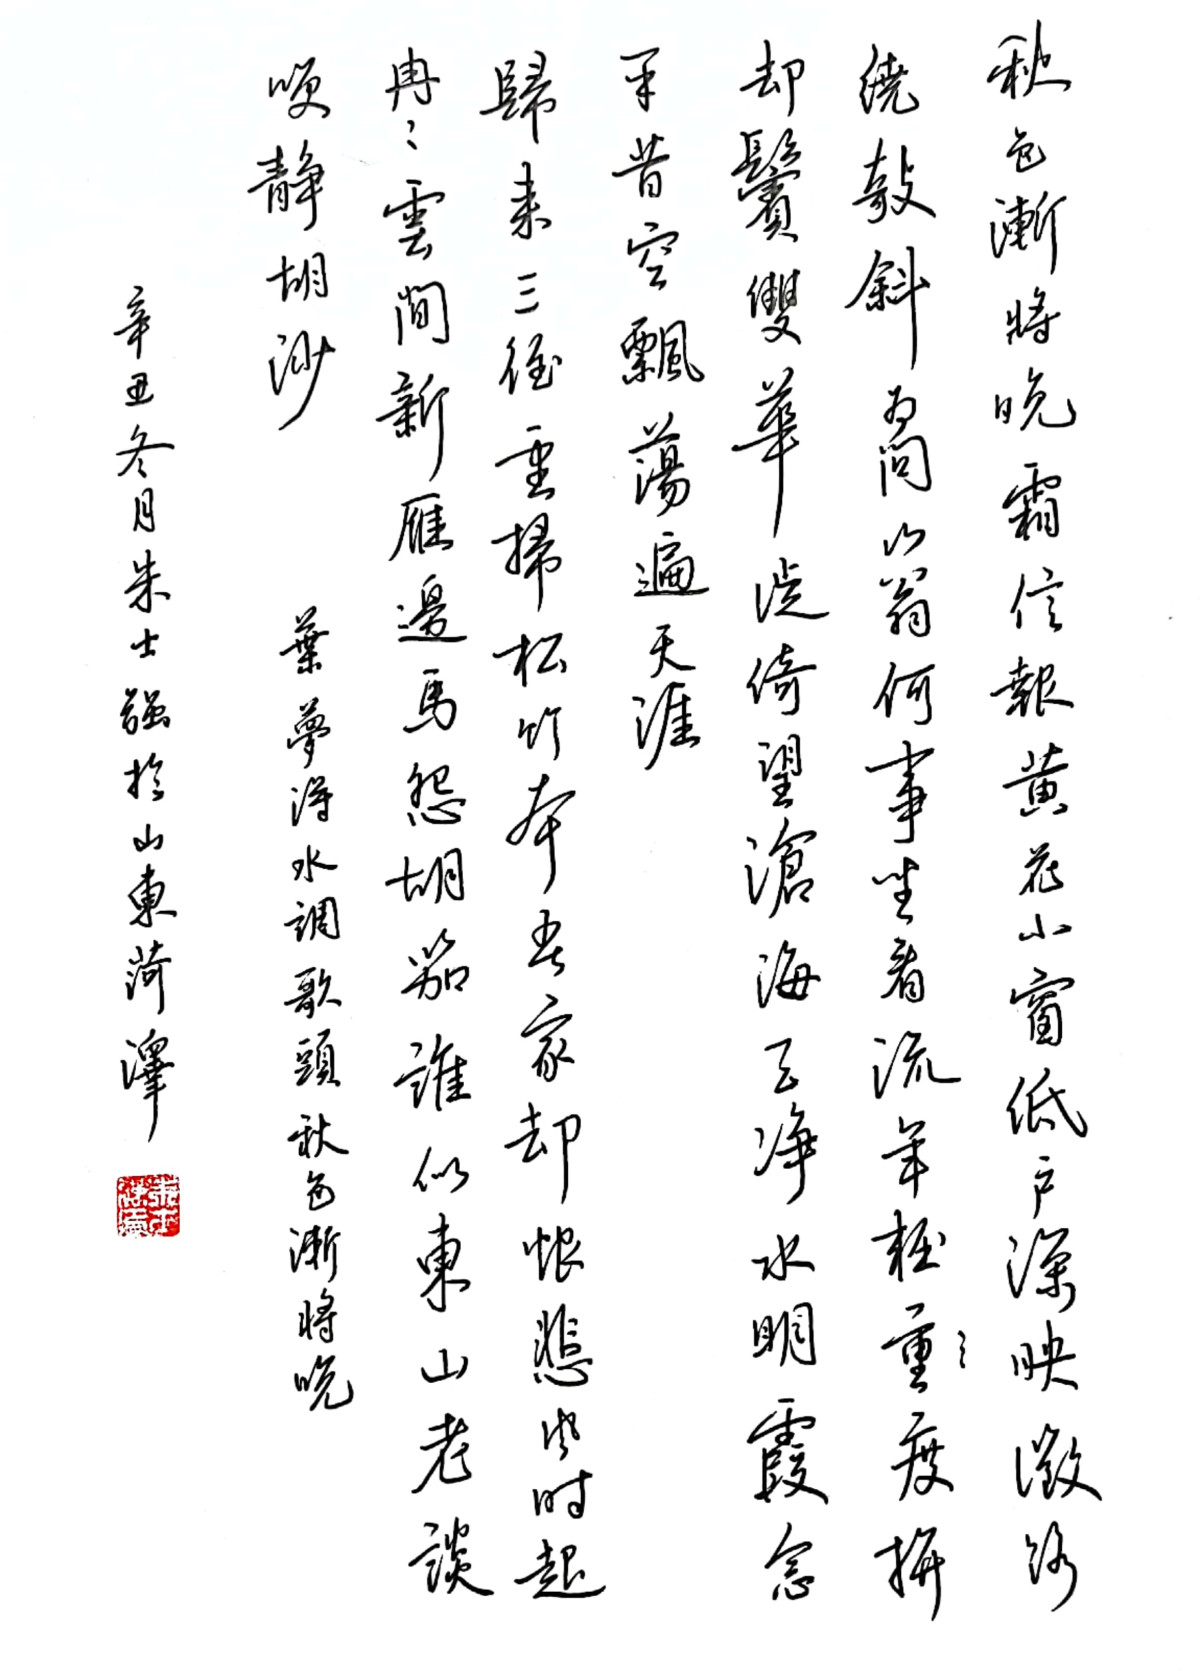 秋色漸將晚霜信報黄花小窗低户深映微路
繞敧斜為問山翁何事坐看流年輕重度拚
却鬢雙華徙倚望滄海天淨水明霞念
平昔空飄蕩遍天涯
歸来三徑重掃松竹本吾家却恨悲風时起
冉〻雲間新雁邊馬怨胡笳誰似東山老談
咲靜胡沙
葉夢得水調歌頭秋色漸將晚
辛丑冬月朱士强於山東菏澤